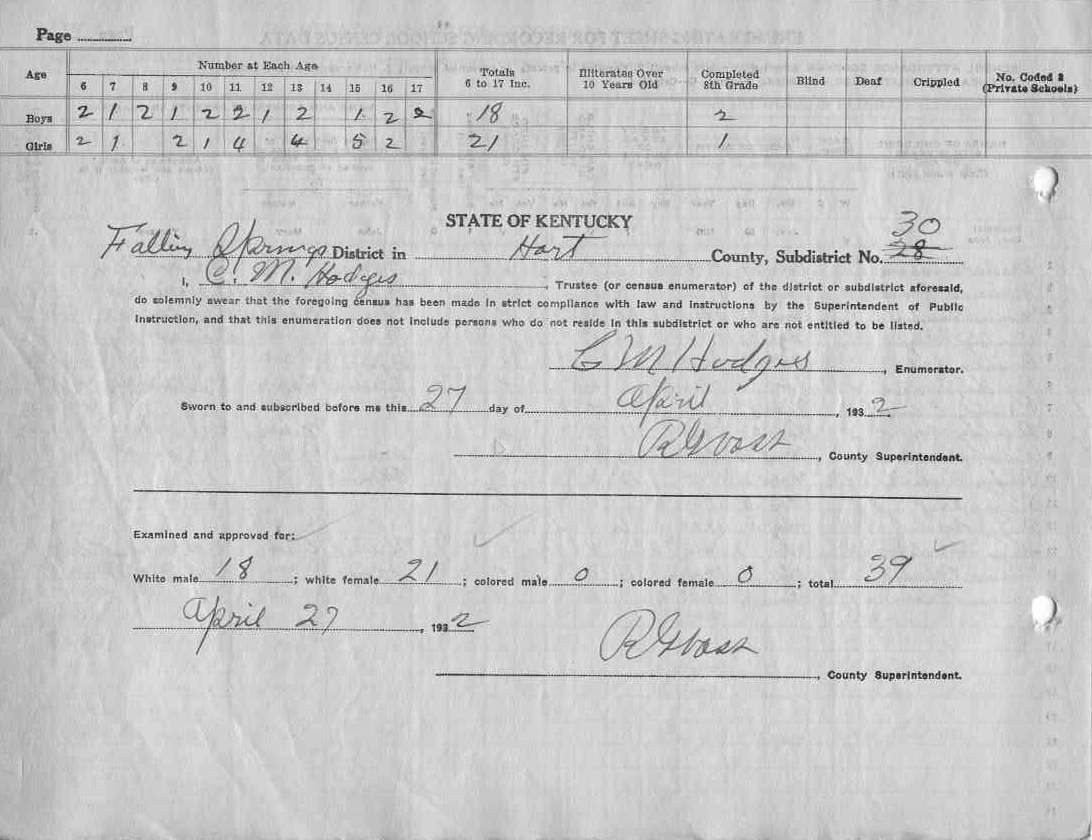 Page
Age Number at Each Age Totals 6 to 17 Inc. Illiterates Over 10 Years Old Completed 8th Grade Blind Deaf Crippled No. Coded 2 (Private Schools)
6 7 8 9 10 11 12 13 14 15 16 17
Boys 2 1 2 1 2 2 1 2 1 2 2 18 2
Girls 2 1 2 1 4 4 5 2 21 1
STATE OF KENTUCKY
30
Falling Springs District in Hart County, Subdistrict No. 28
I, C. M. Hodges, Trustee (or census enumerator) of the district or subdistrict aforesaid,
do solemnly swear that the foregoing census has been made in strict compliance with law and instructions by the Superintendent of Public
Instruction, and that this enumeration does not include persons who do not reside in this subdistrict or who are not entitled to be listed.
C M Hodges, Enumerator.
Sworn to and subscribed before me this 27 day of April, 1932
, County Superintendent.
Examined and approved for:
White male 18; white female 21; colored male 0; colored female 0; total 39
April 27, 1932
, County Superintendent.